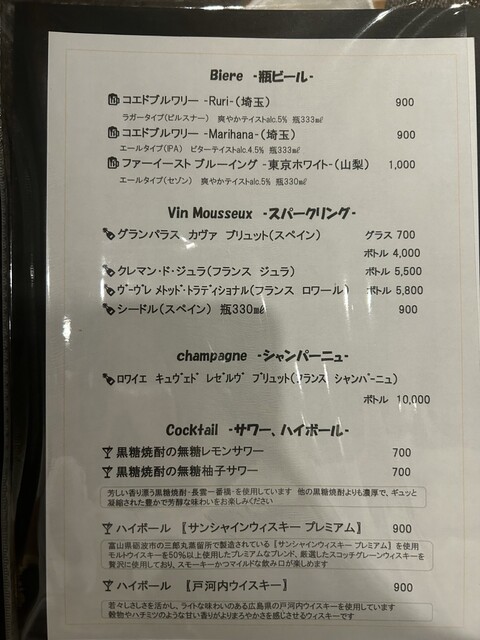 Biere -瓶ビール-
コエドブルワリー -Ruri-(埼玉) 900
ラガータイプ(ピルスナー) 爽やかテイストalc.5% 瓶333㎖
コエドブルワリー -Marihana-(埼玉) 900
エールタイプ(IPA) ビターテイストalc.4.5% 瓶333㎖
ファーイースト ブルーイング -東京ホワイト-(山梨) 1,000
エールタイプ(セゾン) 爽やかテイストalc.5% 瓶330㎖
Vin Mousseux -スパークリング-
グランパラス カヴァ ブリュット(スペイン) グラス 700
ボトル 4,000
クレマン・ド・ジュラ(フランス ジュラ) ボトル 5,500
ヴーヴレ メトッド・トラディショナル(フランス ロワール) ボトル 5,800
シードル(スペイン) 瓶330㎖ 900
champagne -シャンパーニュ-
ロワイエ キュヴェド レゼルヴ ブリュット(フランス シャンパーニュ)
ボトル 10,000
Cocktail -サワー、ハイボール-
黒糖焼酎の無糖レモンサワー 700
黒糖焼酎の無糖柚子サワー 700
芳しい香り漂う黒糖焼酎・長雲一番橋・を使用しています 他の黒糖焼酎よりも濃厚で、ギュッと
凝縮された豊かで芳醇な味わいをお楽しみください
ハイボール 〖サンシャインウィスキー プレミアム〗 900
富山県砺波市の三郎丸蒸留所で製造されている〖サンシャインウィスキー プレミアム〗を使用
モルトウイスキーを50%以上使用したプレミアムなブレンド、厳選したスコッチグレーンウィスキーを
贅沢に使用しており、スモーキーかつマイルドな飲み口が楽しめます
ハイボール 〖戸河内ウイスキー〗 900
若々しさしさを活かし、ライトな味わいのある広島県の戸河内ウイスキーを使用しています
穀物やハチミツのような甘い香りがよりまろやかさを感じさせるウィスキーです